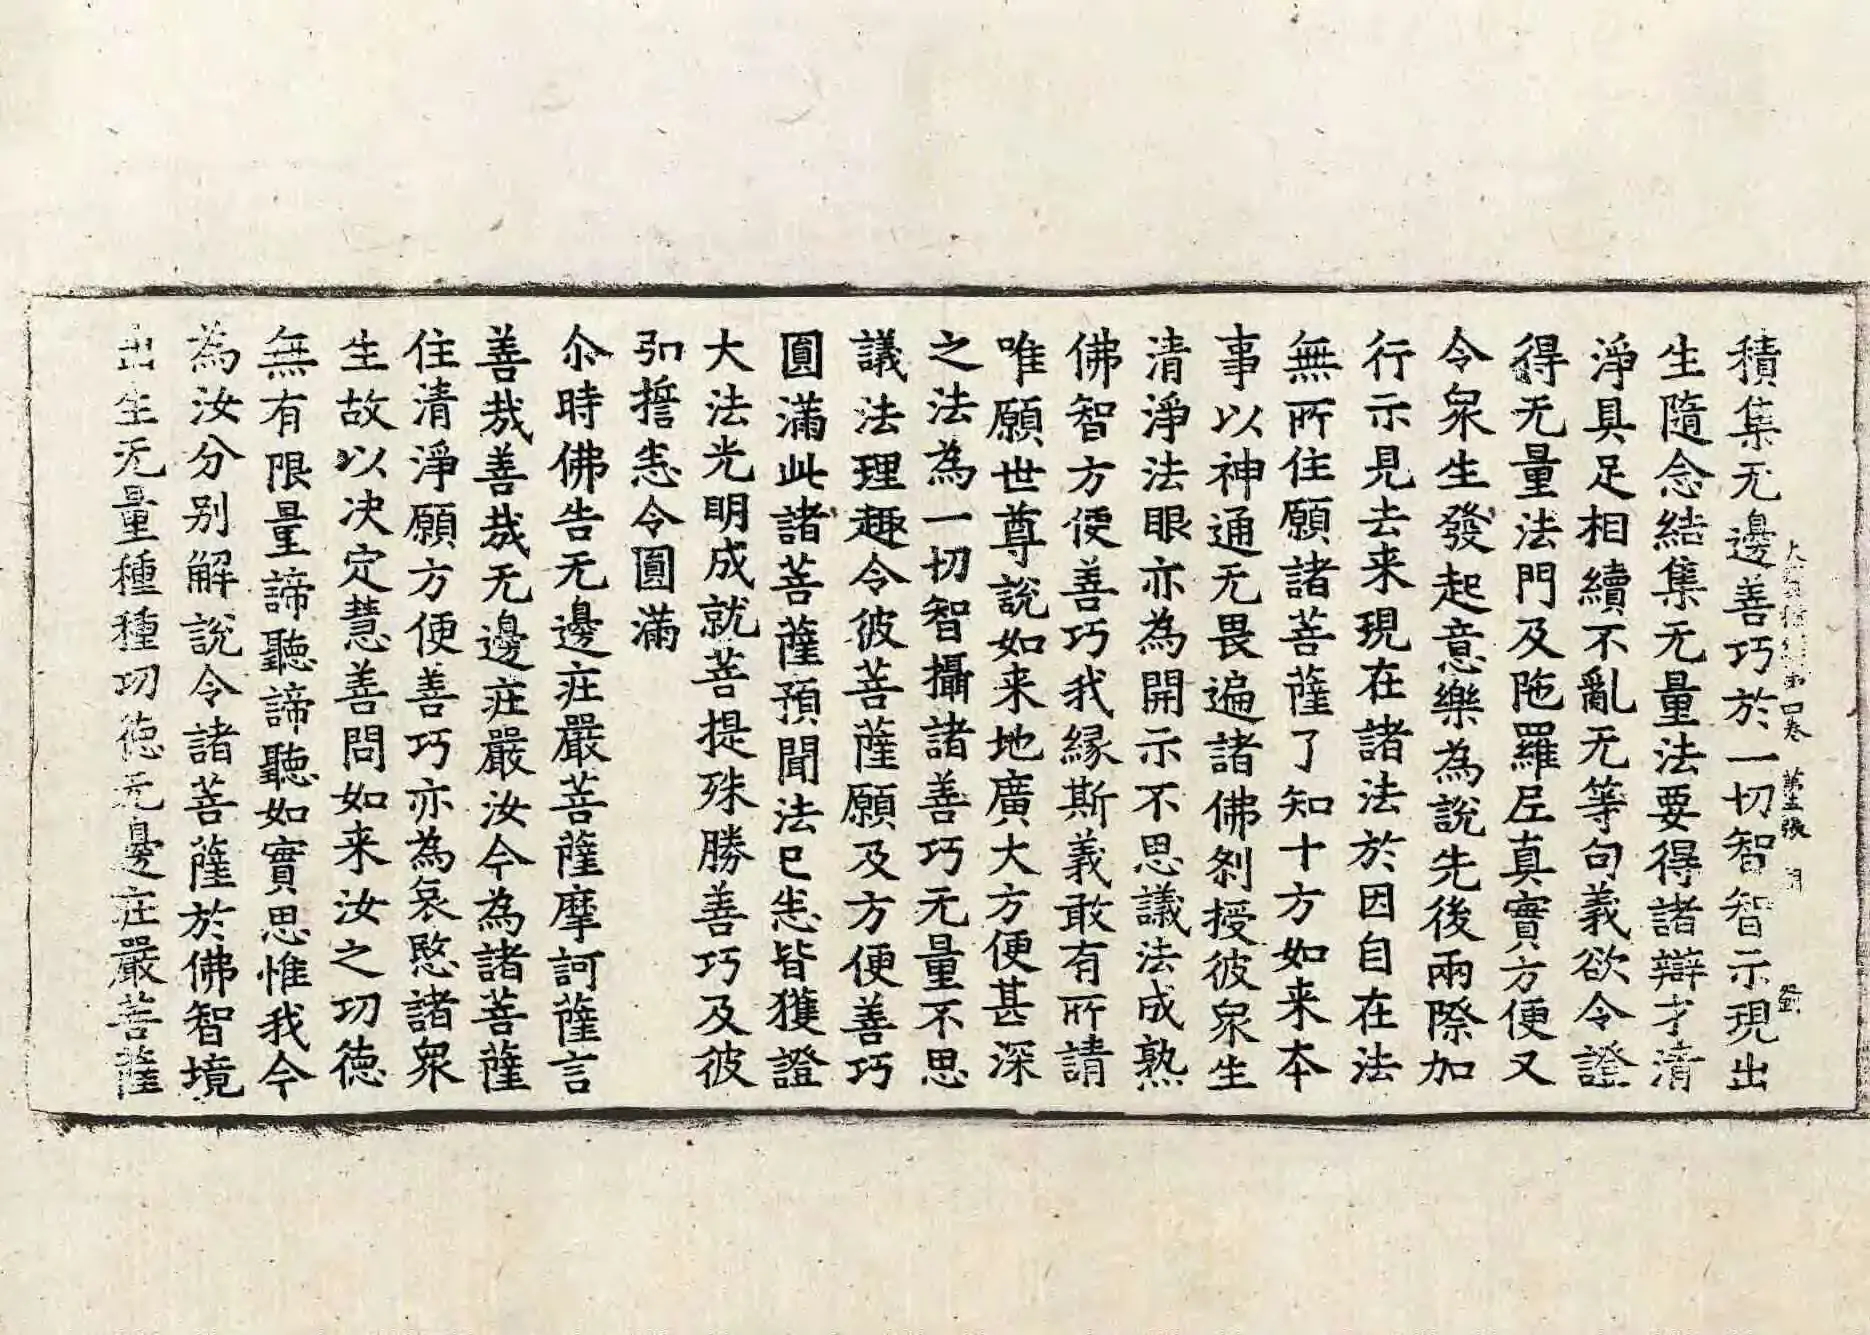 積集无邊善巧於一切智智示現出
生隨念結集无量法要得諸辯才清
淨具足相續不亂无等句義欲令證
得无量法門及陁羅尼真實方便又
令衆生發起意樂為說先後兩際加
行示見去来現在諸法於因自在法
無所住願諸菩薩了知十方如来本
事以神通无畏遍諸佛剎授彼衆生
清淨法眼亦為開示不思議法成熟
佛智方便善巧我緣斯義敢有所請
唯願世尊說如来地廣大方便甚深
之法為一切智攝諸善巧无量不思
議法理趣令彼菩薩願及方便善巧
圓滿此諸菩薩預聞法已悉皆獲證
大法光明成就菩提殊勝善巧及彼
弘誓悉令圓滿
尒時佛告无邊莊嚴菩薩摩訶薩言
善哉善哉无邊莊嚴汝今為諸菩薩
住清淨願方便善巧亦為哀愍諸衆
生故以决定慧善問如来汝之功德
無有限量諦聽諦聽如實思惟我今
為汝分别解說令諸菩薩於佛智境
出生无量種種功德无邊莊嚴菩薩